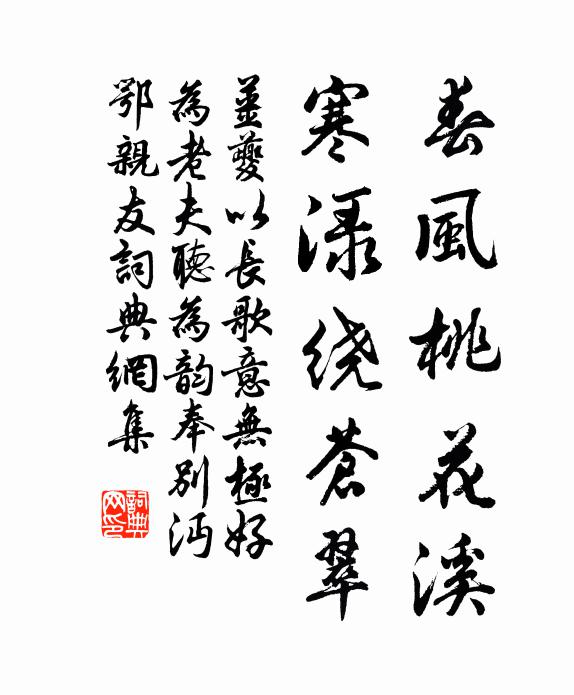 春風桃花溪
寒渌绕蒼翠
薑夔以長歌意無極好
為老夫聽為韵奉别沔
鄂親友詞典網集
詞典网印